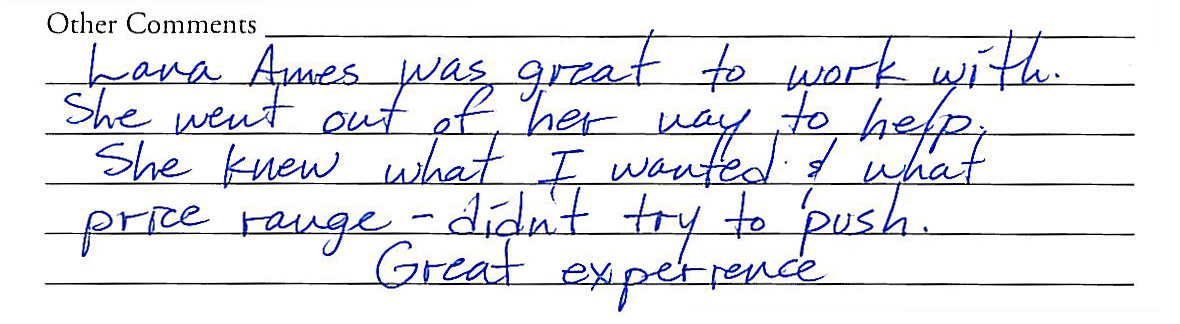 Other Comments
Lana Ames was great to work with.
She went out of her way to help.
She knew what I wanted & what
price range - didn't try to push.
Great experience